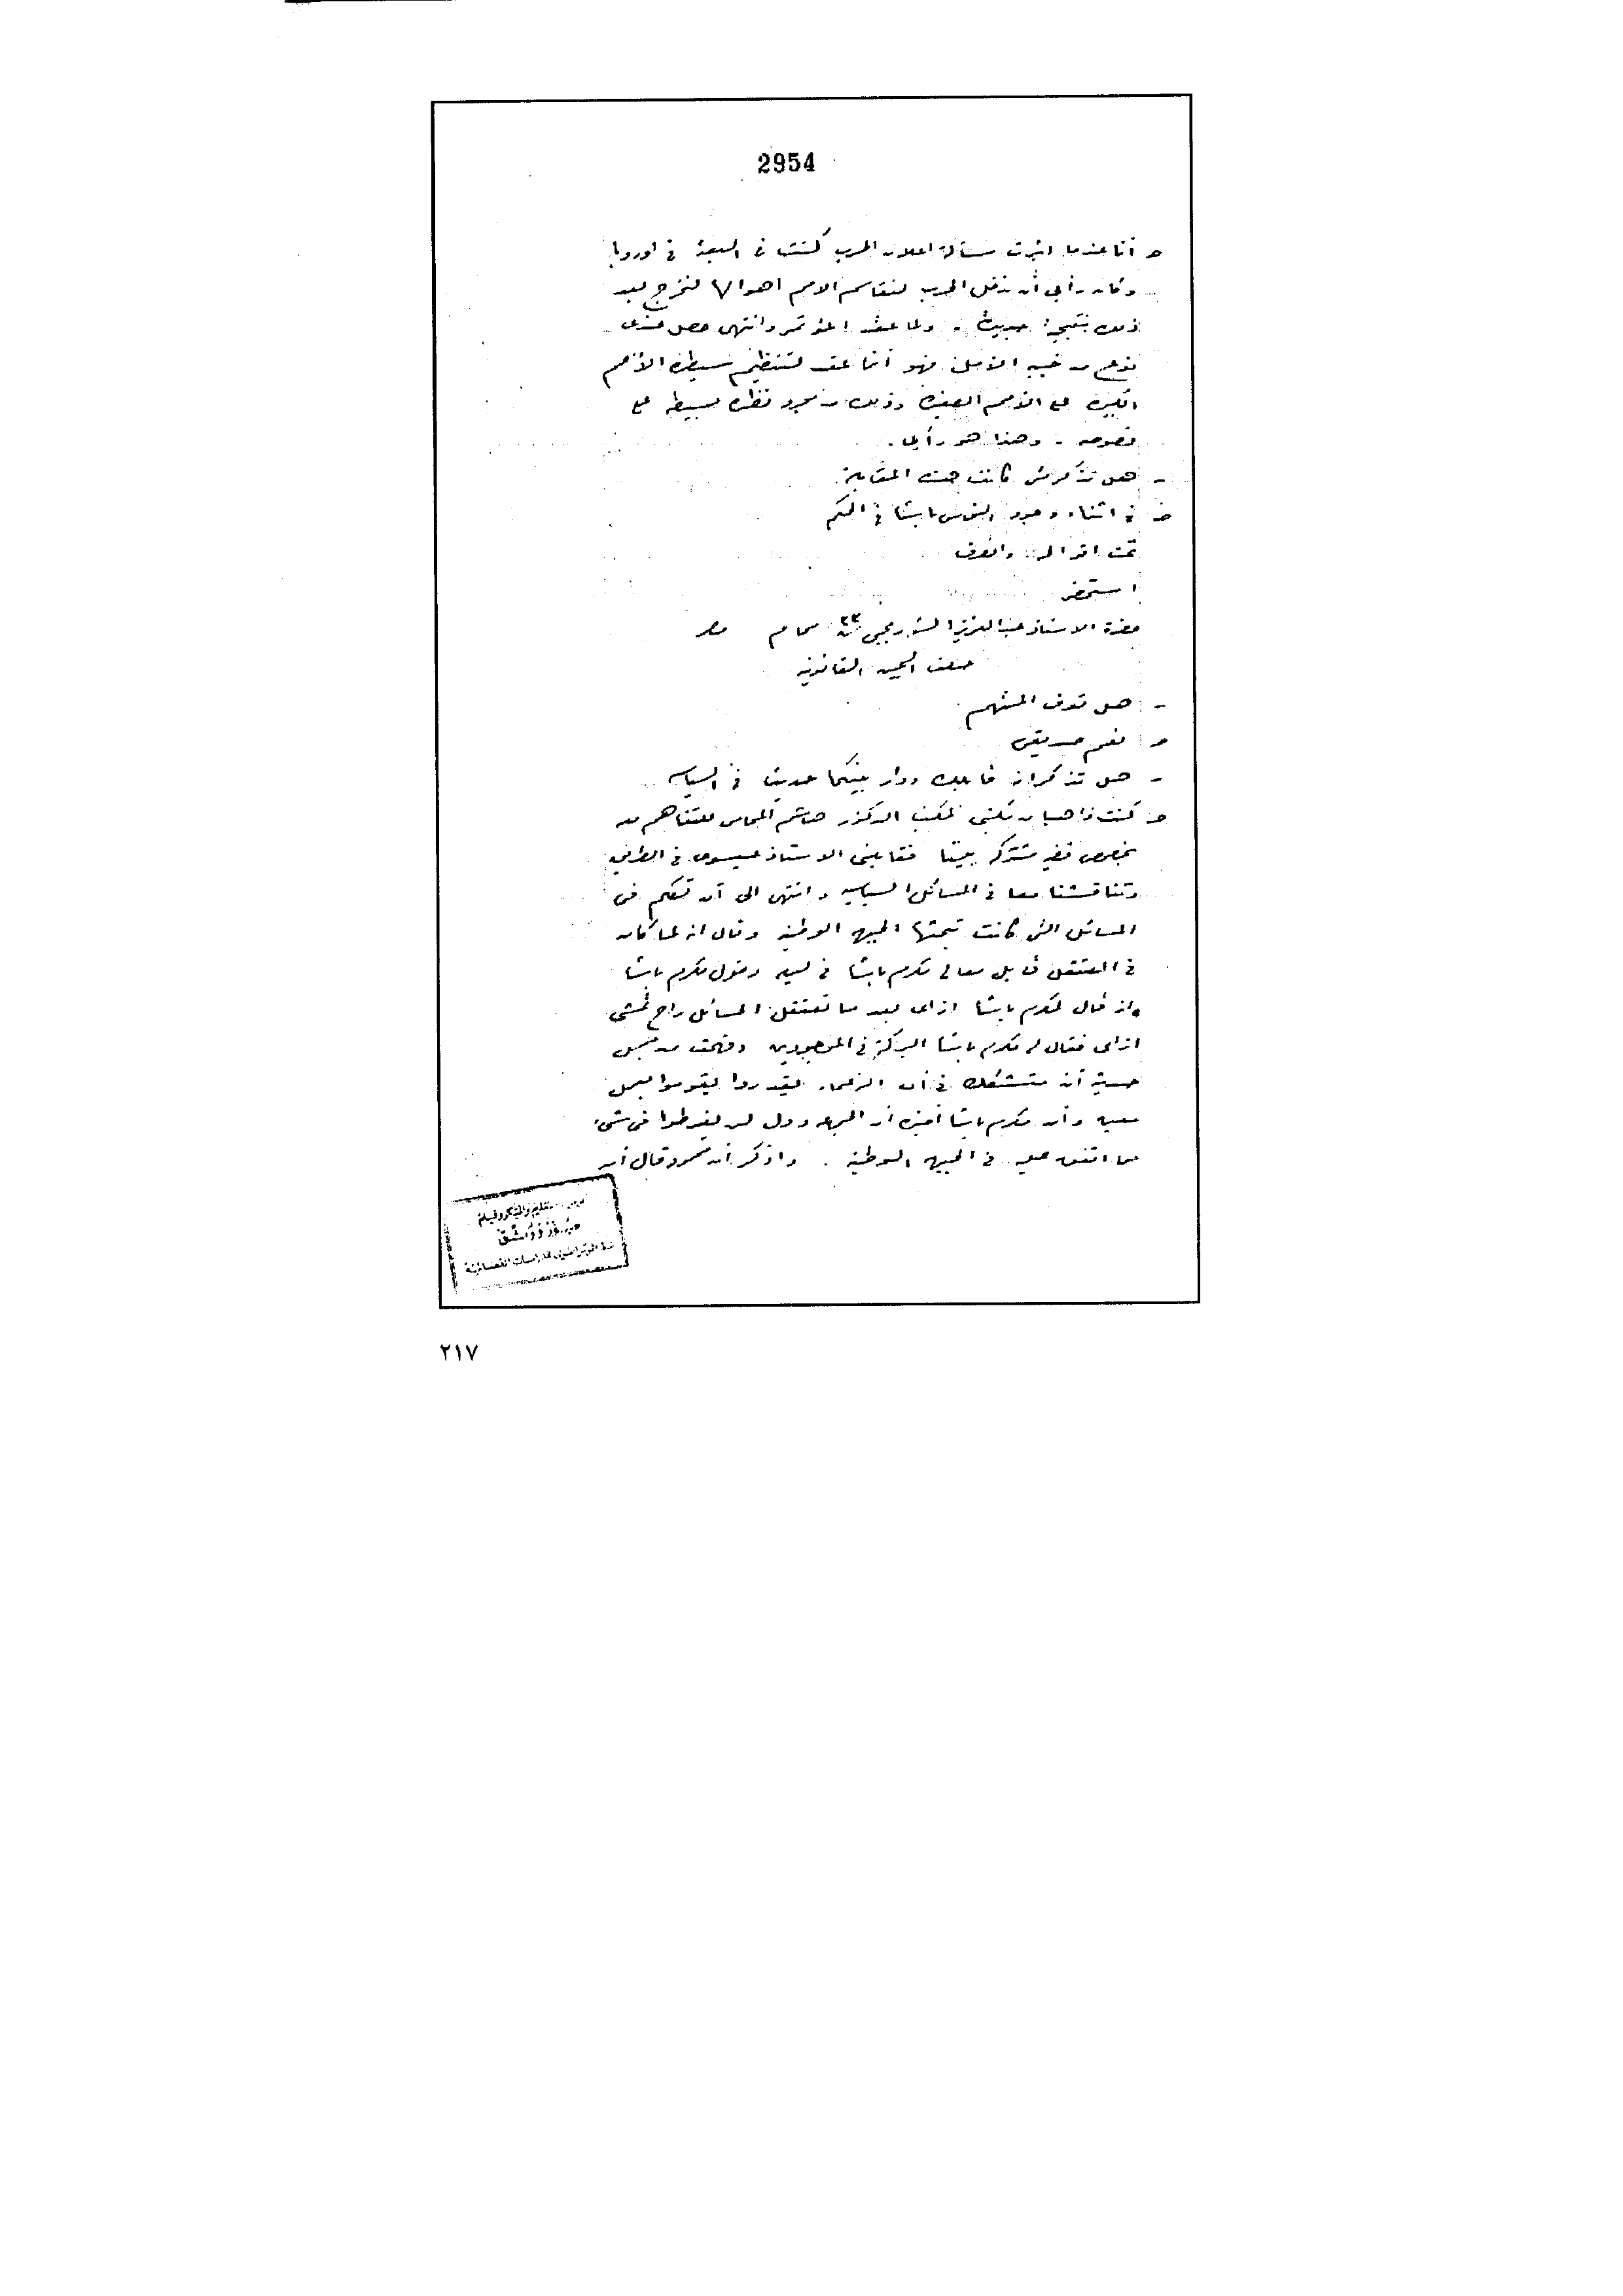 2954
ج أنا عندما اثيرت مسألة اعلان الحرب كنت فى البعثة فى اوروبا
وكان رأيى أن ندخل الحرب لنقاسم الامم اهوالها لنخرج بعد
ذلك بنتيجة . ولما عقد المؤتمر وانتهى حصل عندى
نوع من خيبة الأمل فهو أنما عقد لتنظيم سيطرة الأمم
الكبيرة على الأمم الصغيرة وذلك من مجرد نظرة بسيطة على
نصوصه . وهذا هو رأيى .
- هل تذكر متى كانت هذه المقابلة
ج فى اثناء وجود النحاس باشا فى الحكم
تمت اقواله وانصرف
استحضر
حضرة الاستاذ عبد العزيز الشوربجى ٣٣ سنة محام مصر
حلف اليمين القانونية
- هل تعرف المتهم
ج نعم صديقى
- هل تذكر انه قابلك ودار بينكما حديث فى السياسة
ج كنت ذاهبا من مكتبى لمكتب الدكتور هاشم المحامى للتفاهم معه
بخصوص قضية مشتركة بيننا فقابلنى الاستاذ عيسوى فى الطريق
وتناقشنا معا فى المسائل السياسية وانتهى الى أن تكلم فى
المسائل التى كانت تبحثها الجبهة الوطنية وقال انه لما كان
فى المعتقل قابل معالى مكرم باشا فى ليلة دخول مكرم باشا
وانه قال لمكرم باشا ازاى بعد ما تعتقل المسائل راح تمشى
ازاى فقال له مكرم باشا البركة فى الموجودين وفهمت من
حديثه أنه متشكك فى أن الزعماء يقدروا يقوموا بعمل
معين وأن مكرم باشا أخبره أن الجماعة دول لن يفرطوا فى شىء
مما اتفق عليه فى الجبهة الوطنية . واذكر أن محمود قال أن
٢١٧